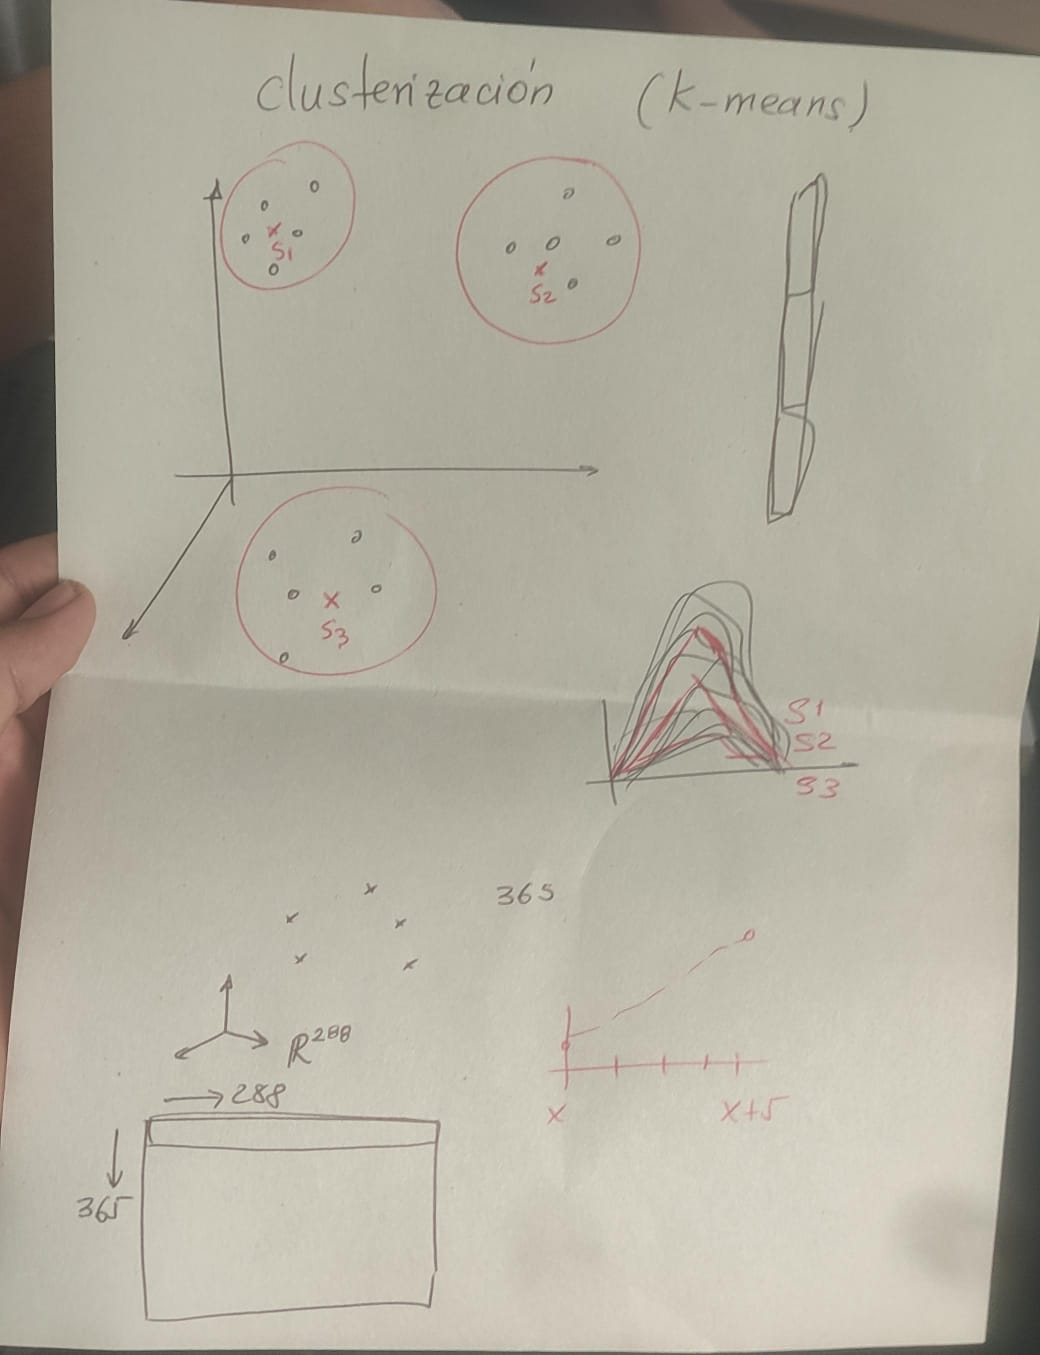 clusterización (k-means)
S1
S2
S3
S1
S2
S3
365
R²⁸⁸
→ 288
365
x x+5